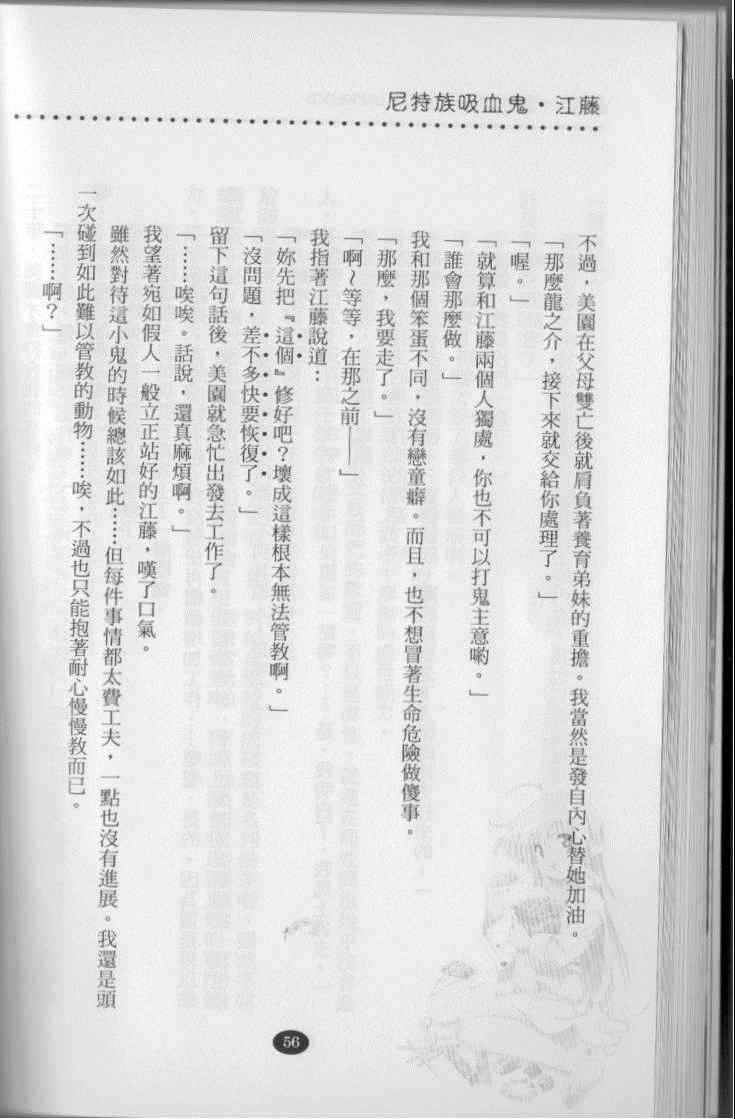 尼特族吸血鬼・江藤
不過，美園在父母雙亡後就肩負著養育弟妹的重擔。我當然是發自內心替她加油。
「那麼龍之介，接下來就交給你處理了。」
「喔。」
「就算和江藤兩個人獨處，你也不可以打鬼主意喲。」
「誰會那麼做。」
我和那個笨蛋不同，沒有戀童癖。而且，也不想冒著生命危險做傻事。
「那麼，我要走了。」
「啊～等等，在那之前——」
我指著江藤說道：
「妳先把『這個』修好吧？壞成這樣根本無法管教啊。」
「沒問題，差不多快要恢復了。」
留下這句話後，美園就急忙出發去工作了。
「……唉唉。話說，還真麻煩啊。」
我望著宛如假人一般立正站好的江藤，嘆了口氣。
雖然對待這小鬼的時候總該如此……但每件事情都太費工夫，一點也沒有進展。我還是頭
一次碰到如此難以管教的動物……唉，不過也只能抱著耐心慢慢教而已。
「……啊？」
56